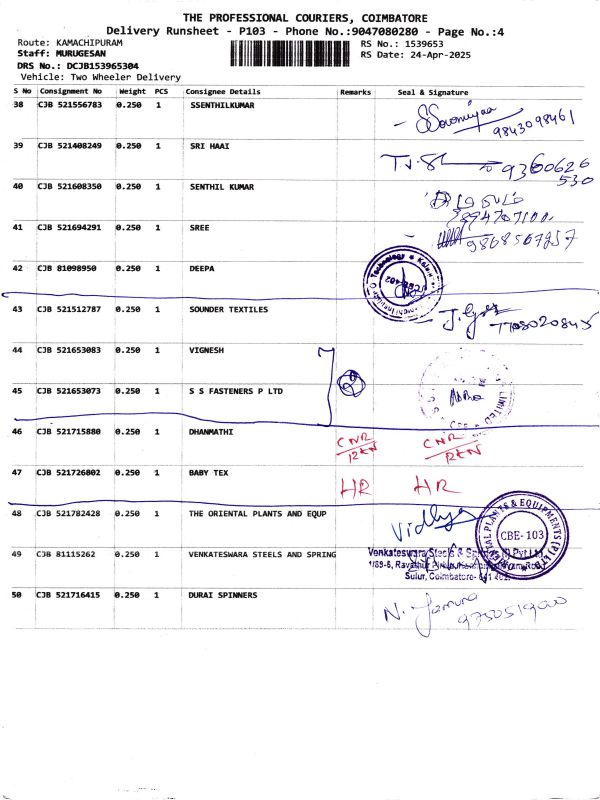 THE PROFESSIONAL COURIERS, COIMBATORE
Delivery Runsheet - P103 - Phone No.:9047080280 - Page No.:4
Route: KAMACHIPURAM RS No.: 1539653
Staff: MURUGESAN RS Date: 24-Apr-2025
DRS No.: DCJB153965304
Vehicle: Two Wheeler Delivery
S No Consignment No Weight PCS Consignee Details Remarks Seal & Signature
38 CJB 521556783 0.250 1 SSENTHILKUMAR
9843098461
39 CJB 521408249 0.250 1 SRI HAAI
9360626
530
40 CJB 521608350 0.250 1 SENTHIL KUMAR
41 CJB 521694291 0.250 1 SREE
42 CJB 81098950 0.250 1 DEEPA
43 CJB 521512787 0.250 1 SOUNDER TEXTILES
44 CJB 521653083 0.250 1 VIGNESH
45 CJB 521653073 0.250 1 S S FASTENERS P LTD
LIMITED
46 CJB 521715880 0.250 1 DHANMATHI CNR CNR
47 CJB 521726802 0.250 1 BABY TEX HR HR
48 CJB 521782428 0.250 1 THE ORIENTAL PLANTS AND EQUP Vidhya
PLANTS & EQUIPMENTS (P)
CBE-103
49 CJB 81115262 0.250 1 VENKATESWARA STEELS AND SPRING
Venkateswara Steels & Pvt Ltd
Sulur, Coimbatore- 641 402
50 CJB 521716415 0.250 1 DURAI SPINNERS N. Jamuna